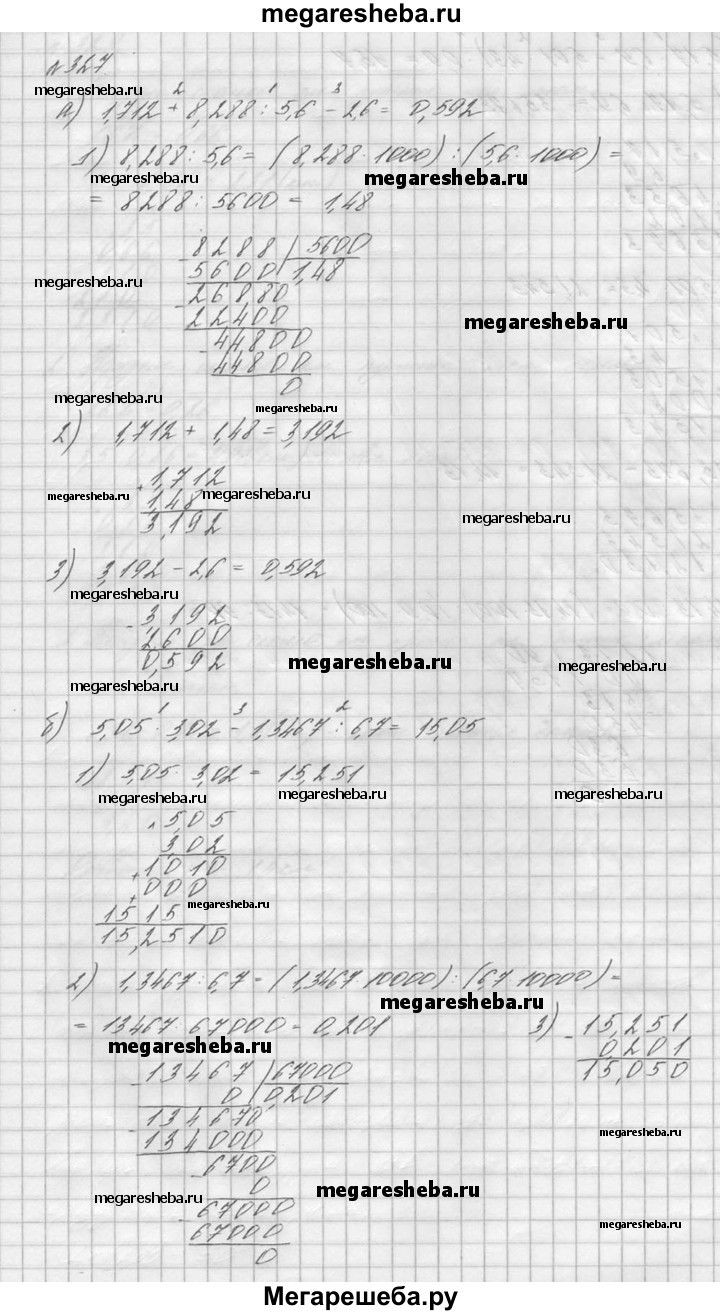 megaresheba.ru
№327
megaresheba.ru
2 1 3
а) 1,712 + 8,288 : 5,6 - 2,6 = 0,592
1) 8,288 : 5,6 = (8,288 · 1000) : (5,6 · 1000) =
megaresheba.ru megaresheba.ru
= 8288 : 5600 = 1,48
- 8288 | 5600
5600 | 1,48
megaresheba.ru
- 26880
22400
megaresheba.ru
- 44800
44800
0
megaresheba.ru megaresheba.ru
2) 1,712 + 1,48 = 3,192
+ 1,712
megaresheba.ru 1,48 megaresheba.ru
3,192 megaresheba.ru
3) 3,192 - 2,6 = 0,592
megaresheba.ru
- 3,192
2,600
0,592 megaresheba.ru megaresheba.ru
1 3 2
б) 5,05 · 3,02 - 1,3467 : 6,7 = 15,05
1) 5,05 · 3,02 = 15,251
megaresheba.ru megaresheba.ru
× 5,05
3,02
+ 1010
+ 000
megaresheba.ru
1515
15,2510
2) 1,3467 : 6,7 = (1,3467 · 10000) : (6,7 · 10000) =
megaresheba.ru
= 13467 : 67000 = 0,201
3) - 15,251
0,201
15,050
megaresheba.ru
- 13467 | 67000
0 | 0,201
- 134670
134000
megaresheba.ru
- 6700
0
megaresheba.ru megaresheba.ru
- 67000
67000
megaresheba.ru
0
Мегарешеба.ру